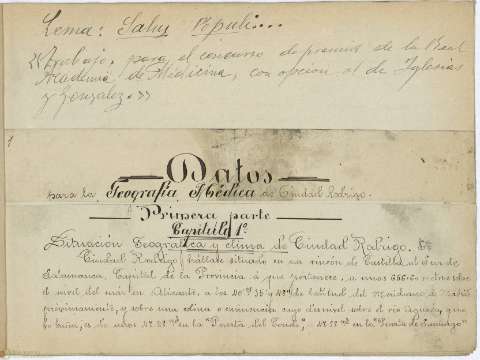 Lema: Salus Populi...
«Trabajo, para el concurso de premios de la Real
Academia de Medicina, con opcion al de Iglesias
y Gonzalez.»
1
Datos
para la Geografía Médica de Ciudad Rodrigo.
Primera parte
Capítulo 1º
Situación Geografica y clima de Ciudad Rodrigo.
Ciudad Rodrigo, hállase situado en un rincón de Castilla, al sur de
Salamanca, Capital de la Provincia á que pertenece, a unos sobre
el nivel del mar en Alicante, a los de latitud del Meridiano de Madrid
próximamente, y sobre una colina o eminencia cuyo desnivel sobre el río Agueda, que
lo baña, es de unos en la "Puerta del Conde", en la